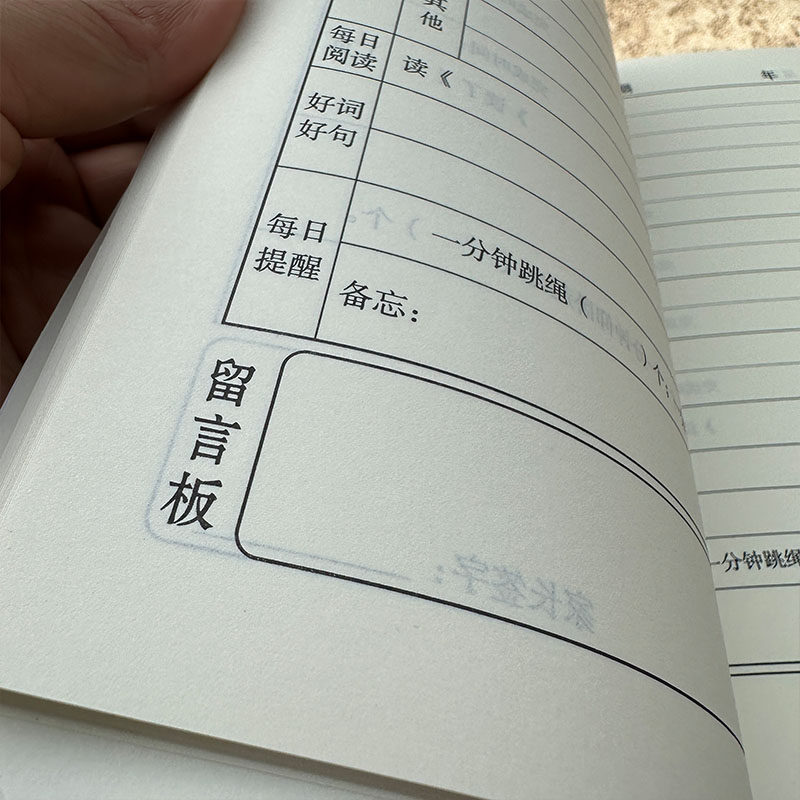 其他
每日
阅读
读《
好词
好句
每日
提醒
一分钟跳绳（ ）个；
备忘：
留言板
年
一分钟跳绳
家长签字：